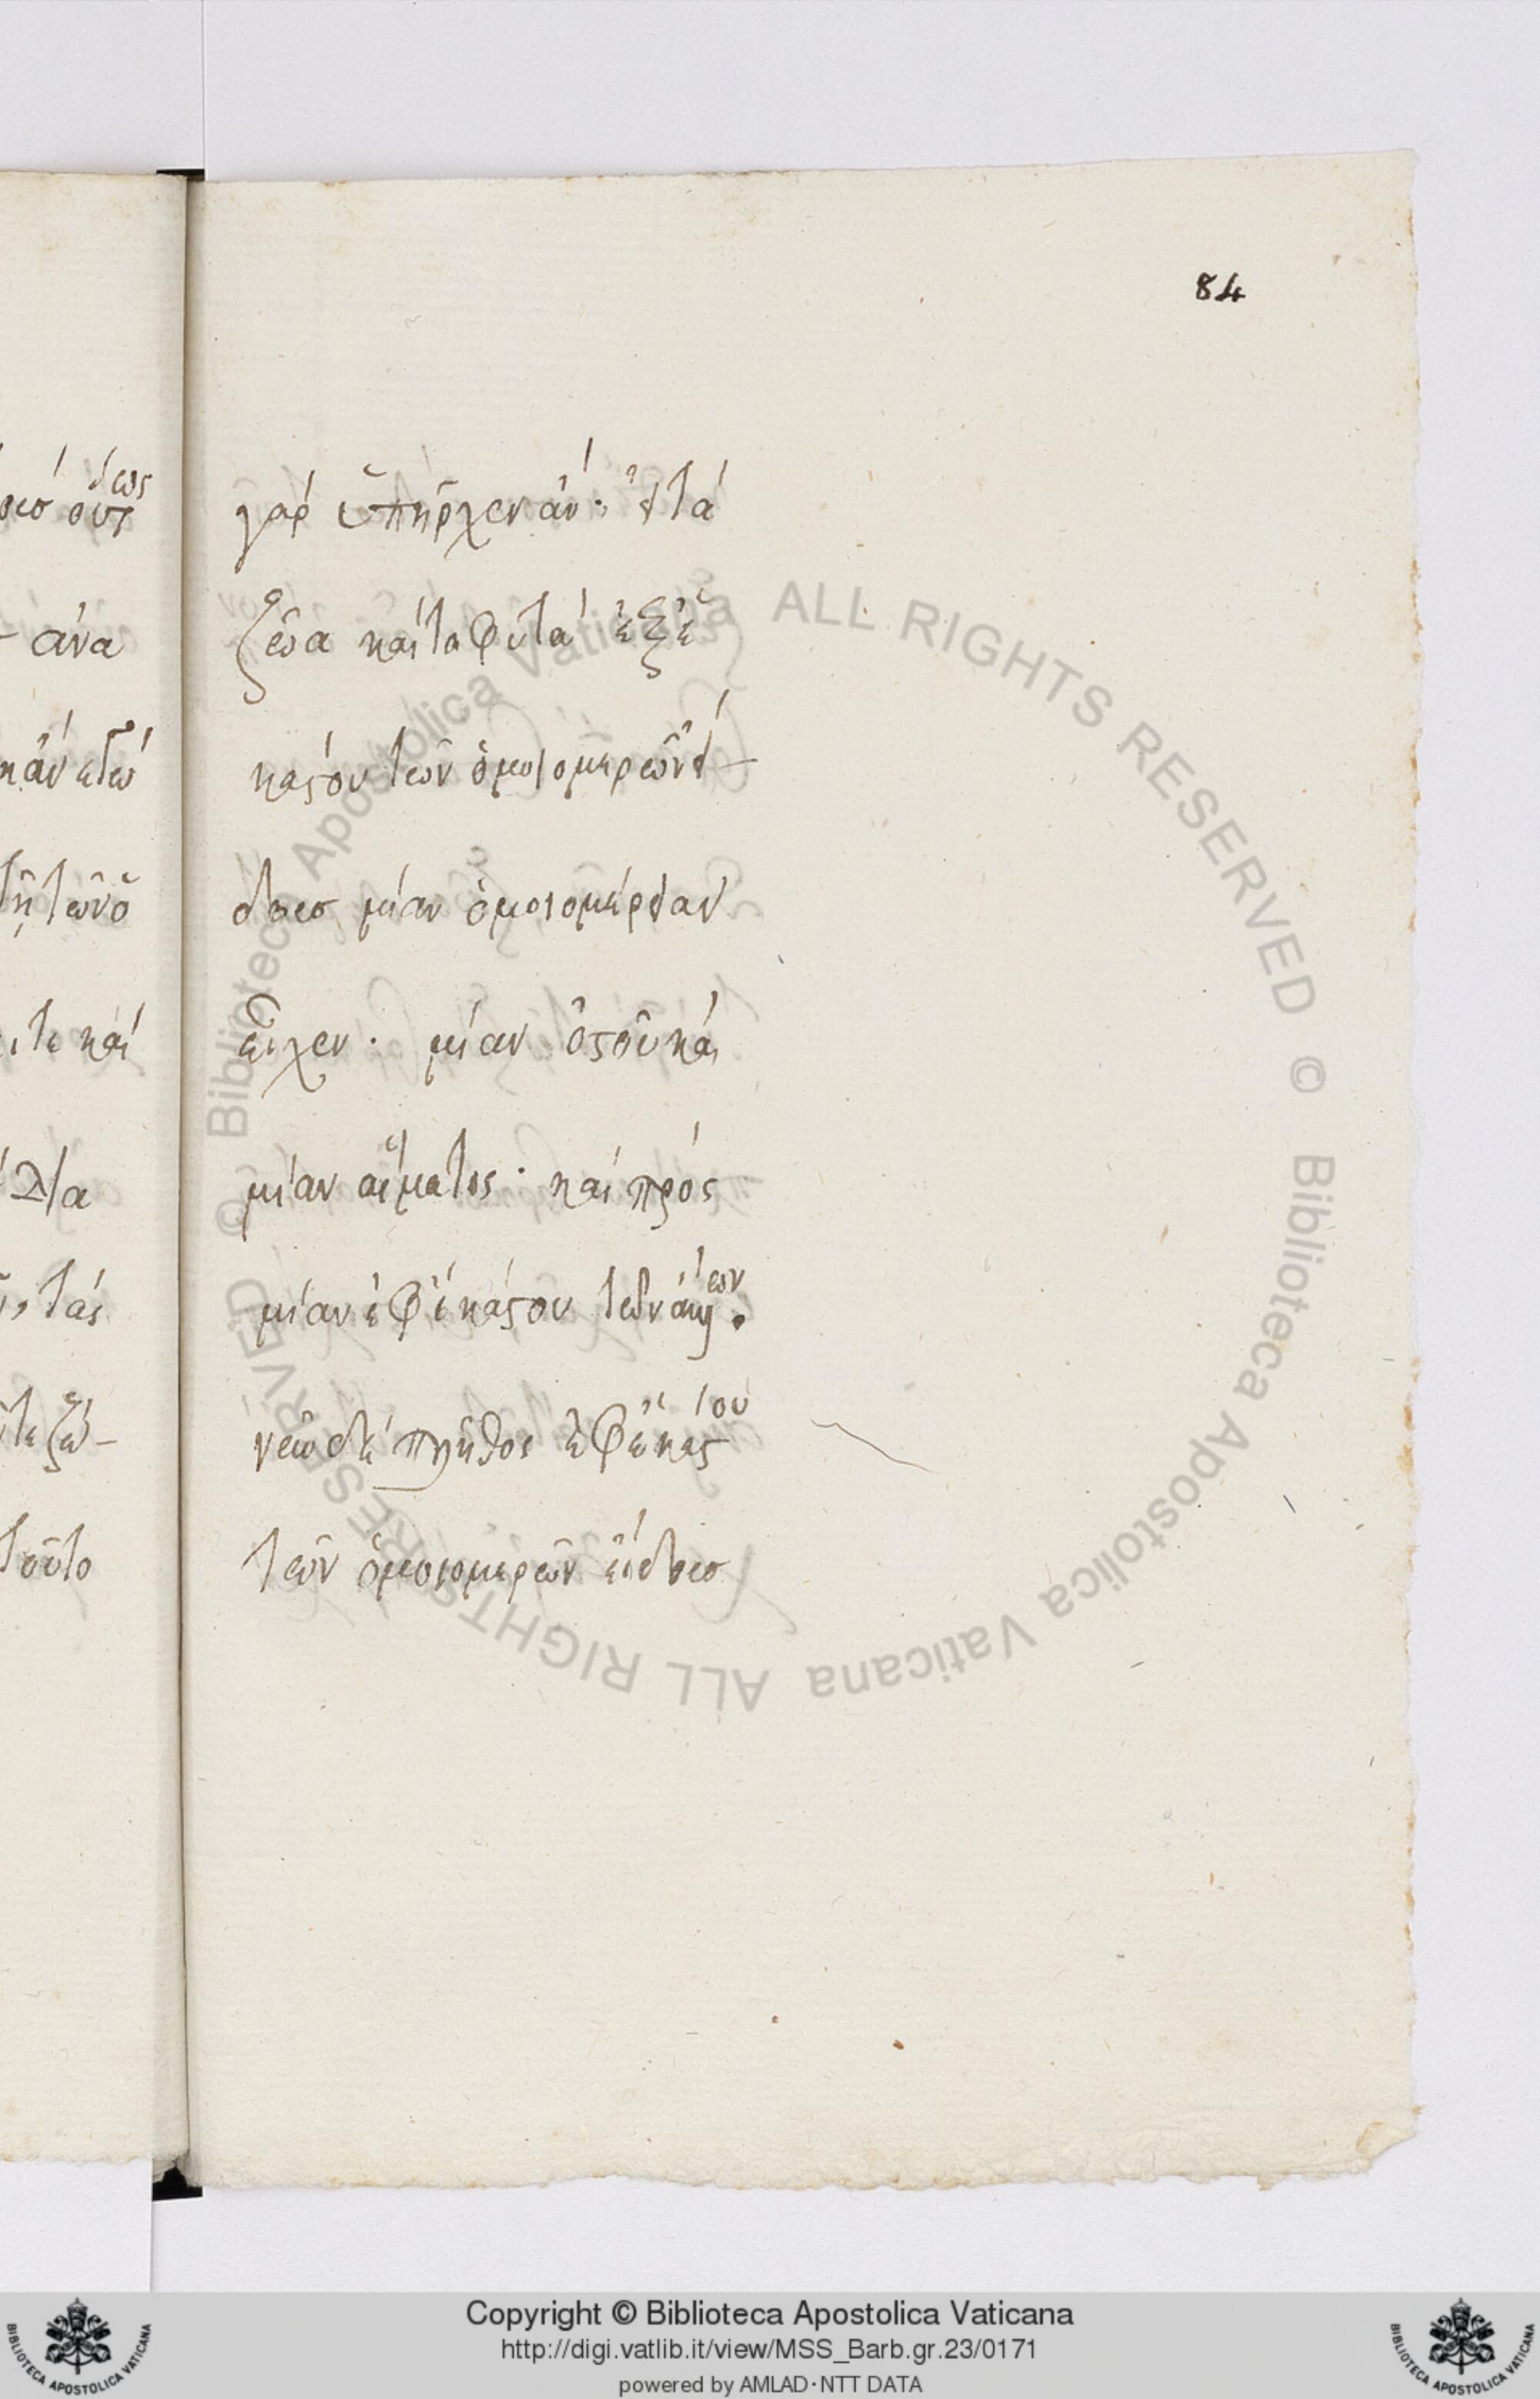 84
γὰρ ὑπῆρχεν ἄν· εἰ τὰ
ζῶα καὶ τὰ φυτὰ ἐξ ἑ
κάστου τῶν ὁμοιομερῶν εἴ-
δους μίαν ὁμοιομέρειαν
εἶχεν· μίαν ὀστοῦ καὶ
μίαν αἵματος· καὶ πρὸς
μίαν ἐφ' ἑκάστου τῶν
νῶ δὲ πλῆθος ἐφ' ἑκάστου
τῶν ὁμοιομερῶν εἴδους
ἀνα
τῆ τῶν ὁ
τε καὶ
τὰς
τοῦτο
© Biblioteca Apostolica Vaticana ALL RIGHTS RESERVED © Biblioteca Apostolica Vaticana ALL RIGHTS RESERVED
Copyright © Biblioteca Apostolica Vaticana
http://digi.vatlib.it/view/MSS_Barb.gr.23/0171
powered by AMLAD·NTT DATA
BIBLIOTECA APOSTOLICA VATICANA
BIBLIOTECA APOSTOLICA VATICANA